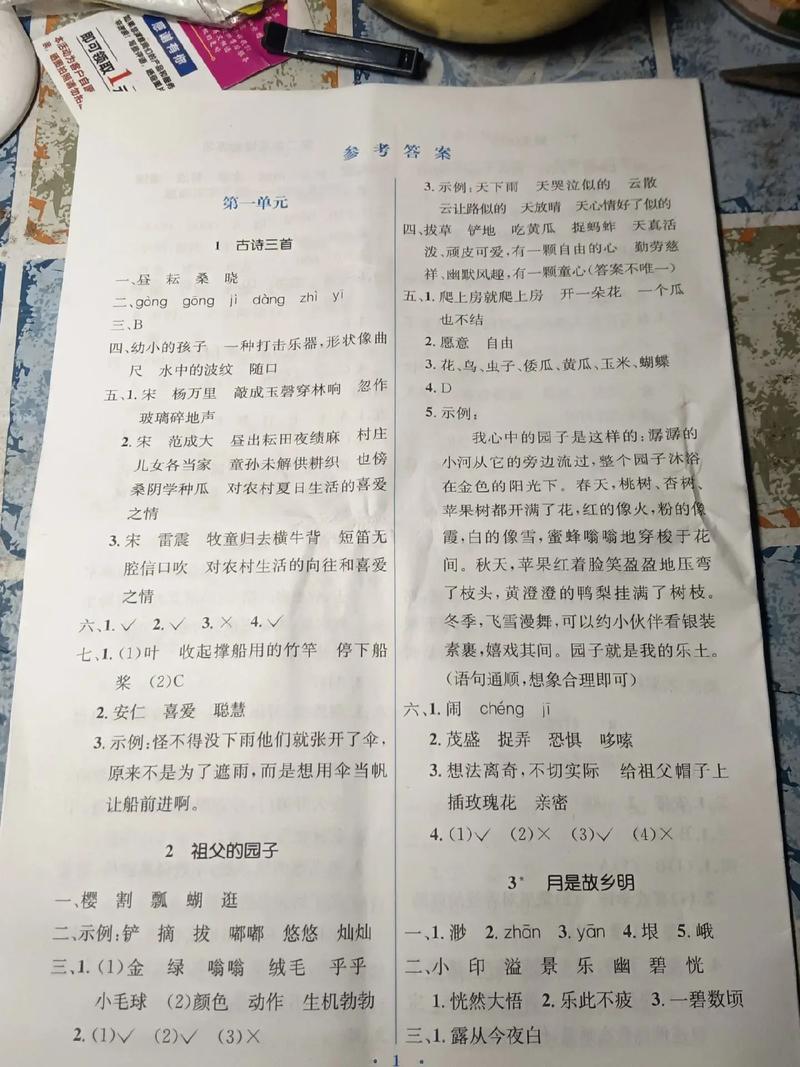 感恩有你
即可领取1元
参考答案
第一单元
1 古诗三首
一、昼 耘 桑 晓
二、gòng gōng jì dàng zhì yī
三、B
四、幼小的孩子 一种打击乐器,形状像曲
尺 水中的波纹 随口
五、1.宋 杨万里 敲成玉磬穿林响 忽作
玻璃碎地声
2.宋 范成大 昼出耘田夜绩麻 村庄
儿女各当家 童孙未解供耕织 也傍
桑阴学种瓜 对农村夏日生活的喜爱
之情
3.宋 雷震 牧童归去横牛背 短笛无
腔信口吹 对农村生活的向往和喜爱
之情
六、1.✓ 2.✓ 3.× 4.✓
七、1.(1)叶 收起撑船用的竹竿 停下船
桨 (2)C
2.安仁 喜爱 聪慧
3.示例:怪不得没下雨他们就张开了伞,
原来不是为了遮雨,而是想用伞当帆
让船前进啊。
2 祖父的园子
一、樱 割 瓢 蝴 逛
二、示例:铲 摘 拔 嘟嘟 悠悠 灿灿
三、1.(1)金 绿 嗡嗡 绒毛 乎乎
小毛球 (2)颜色 动作 生机勃勃
2.(1)✓ (2)✓ (3)×
3.示例:天下雨 天哭泣似的 云散
云让路似的 天放晴 天心情好了似的
四、拔草 铲地 吃黄瓜 捉蚂蚱 天真活
泼、顽皮可爱,有一颗自由的心 勤劳慈
祥、幽默风趣,有一颗童心(答案不唯一)
五、1.爬上房就爬上房 开一朵花 一个瓜
也不结
2.愿意 自由
3.花、鸟、虫子、倭瓜、黄瓜、玉米、蝴蝶
4.D
5.示例:
我心中的园子是这样的:潺潺的
小河从它的旁边流过,整个园子沐浴
在金色的阳光下。春天,桃树、杏树、
苹果树都开满了花,红的像火,粉的像
霞,白的像雪,蜜蜂嗡嗡地穿梭于花
间。秋天,苹果红着脸笑盈盈地压弯
了枝头,黄澄澄的鸭梨挂满了树枝。
冬季,飞雪漫舞,可以约小伙伴看银装
素裹,嬉戏其间。园子就是我的乐土。
(语句通顺,想象合理即可)
六、1.闹 chéng jī
2.茂盛 捉弄 恐惧 哆嗦
3.想法离奇,不切实际 给祖父帽子上
插玫瑰花 亲密
4.(1)✓ (2)× (3)✓ (4)×
3* 月是故乡明
一、1.渺 2.zhān 3.yān 4.垠 5.峨
二、小 印 溢 景 乐 幽 碧 恍
1.恍然大悟 2.乐此不疲 3.一碧数顷
三、1.露从今夜白
· 1 ·